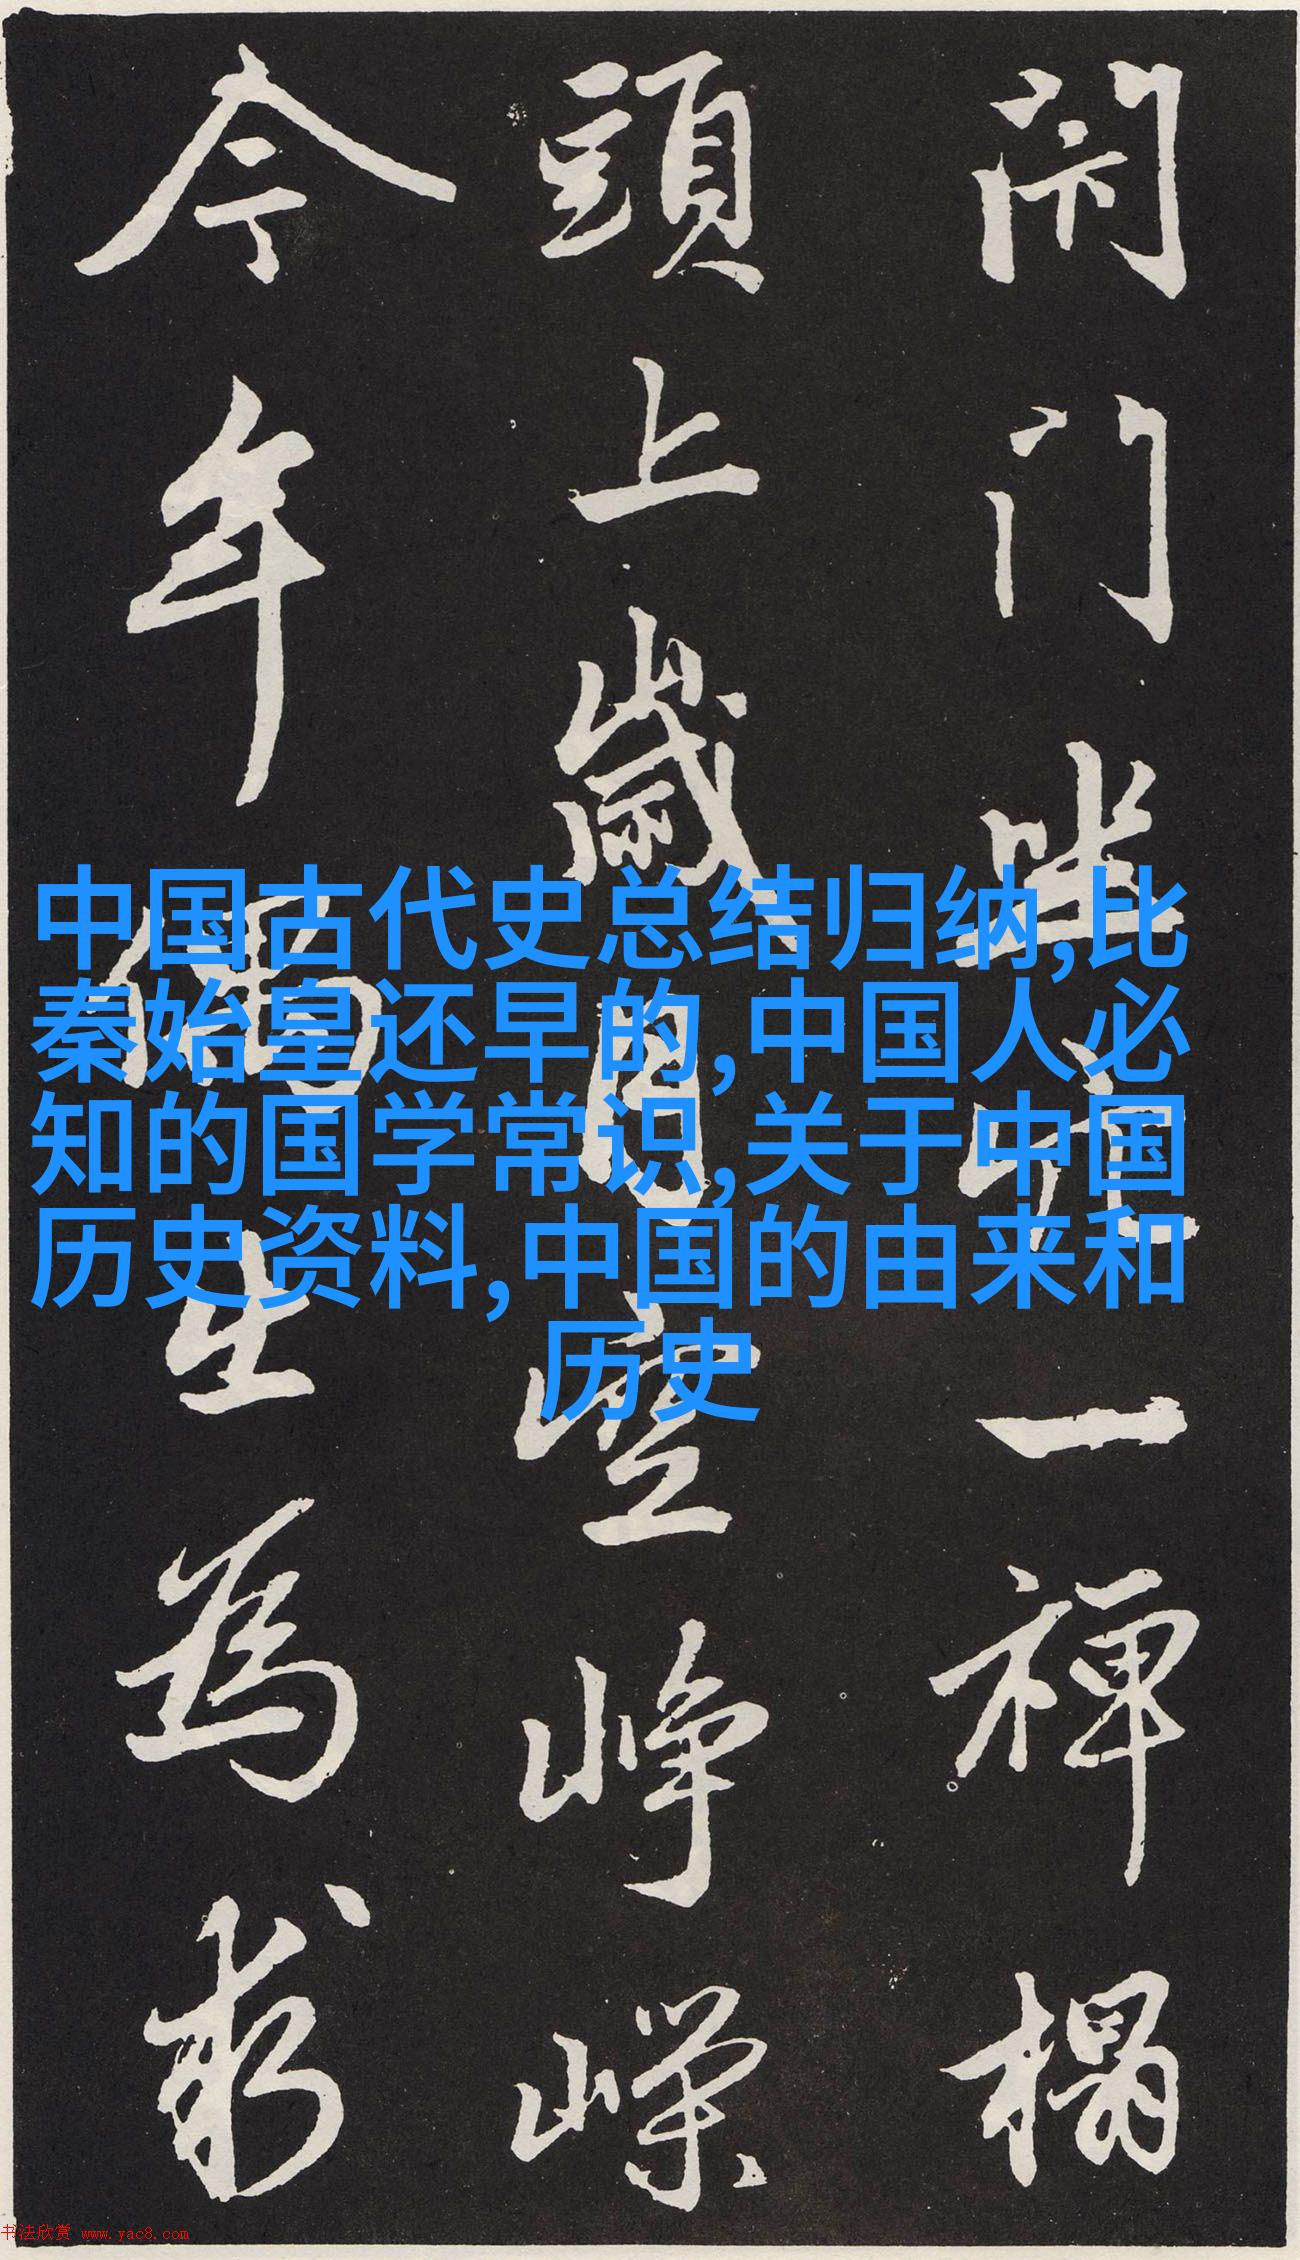 閉门坐穴一禪榻
頭上歲月空崢嶸
今年偶出為求
中国古代史总结归纳,比
秦始皇还早的,中国人必
知的国学常识,关于中国
历史资料,中国的由来和
历史
书法欣赏 www.yac8.com